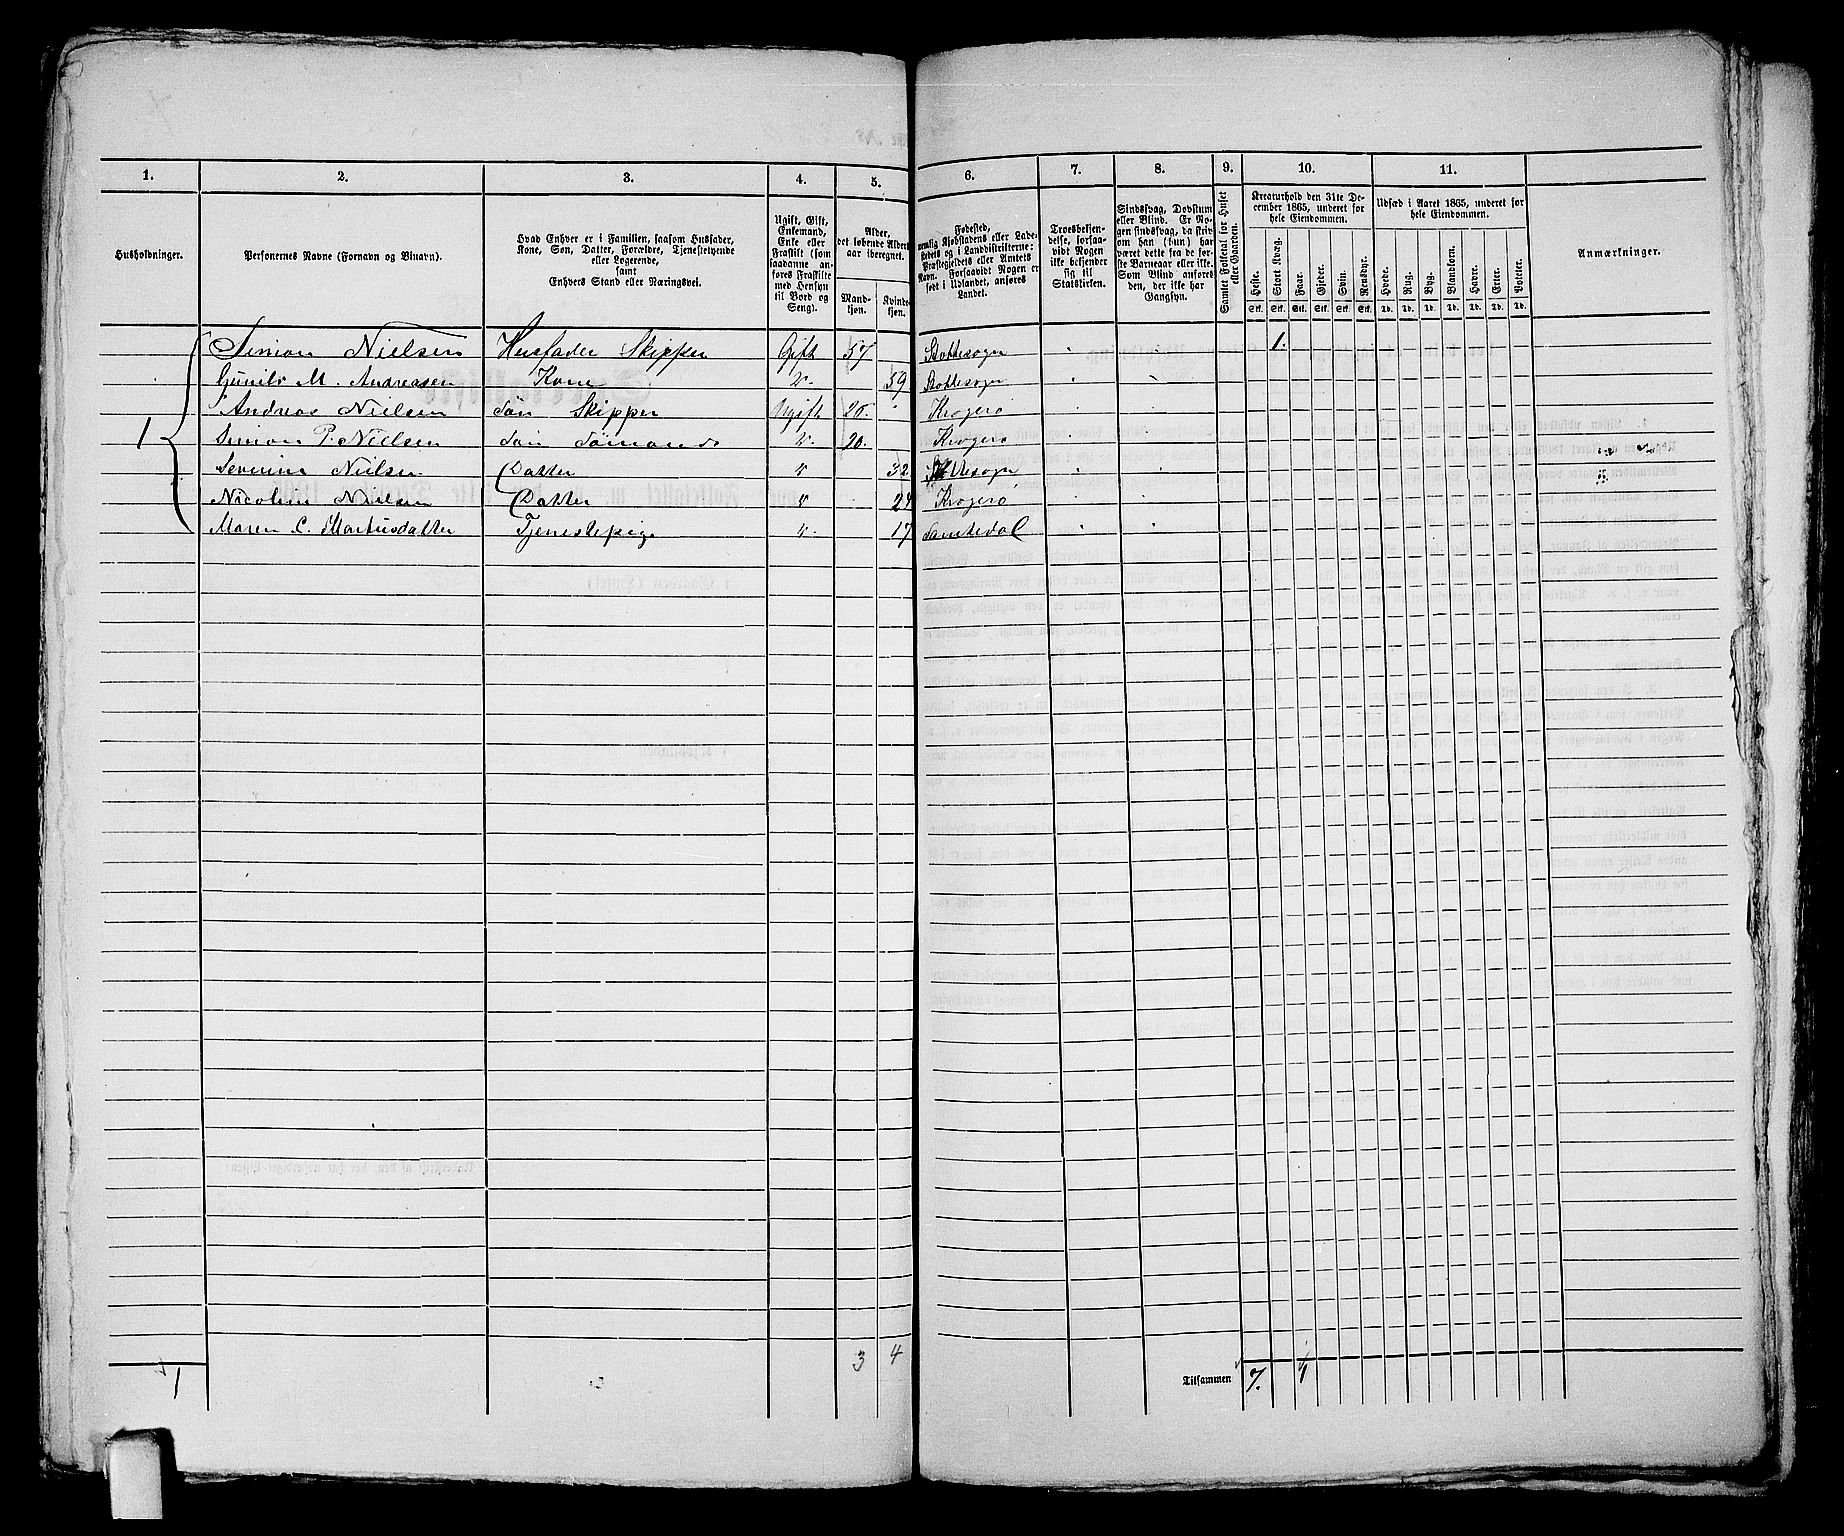 1. 2. 3. 4. 5. 6. 7. 8. 9. 10. 11.
Husholdninger.
Personernes Navne (Fornavn og Binavn).
Hvad Enhver er i Familien, saasom Husfader,
Kone, Søn, Datter, Forældre, Tjenestetyende
eller Logerende,
samt
Enhvers Stand eller Næringsvei.
Ugift, Gift,
Enkemand,
Enke eller
Fraskilt (som
saadanne an-
føres Fraskilte
med Hensyn
til Bord og
Seng).
Alder,
det løbende Alders-
aar iberegnet.
Mand-
kjøn.
Kvinde-
kjøn.
Fødested,
nemlig Kjøbstadens eller Lade-
stedets og i Landdistrikterne:
Præstegjeldets eller Amtets
Navn. Forsaavidt Nogen er
født i Udlandet, anføres
Landet.
Troesbekjen-
delse, forsaa-
vidt Nogen
ikke bekjender
sig til
Statskirken.
Sindssvag, Døvstum
eller Blind. Er No-
gen sindssvag, da skriv
om han (hun) har
været dette fra de før-
ste Barneaar eller ikke.
Som Blind anføres
den, der ikke har
Gangsyn.
Samlet Folketal for Huset
eller Gaarden.
Kreaturhold den 31te De-
cember 1865, underet for
hele Eiendommen.
Heste. Stort Kvæg. Faar. Gjeder. Svin. Rensdyr.
Stk. Stk. Stk. Stk. Stk. Stk.
Udsæd i Aaret 1865, underet for
hele Eiendommen.
Hvede. Rug. Byg. Blandkorn. Havre. Erter. Poteter.
Td. Td. Td. Td. Td. Td. Td.
Anmærkninger.
Simon Nielsen Husfader Skipper Gift 57 Skottesogn 1.
Gunild M. Andreasen Kone 59 Skottesogn
Andreas Nielsen Søn Skipper Ugift 26. Kragerø
1 Simon P. Nielsen Søn Sømand 20. Kragerø
Severine Nielsen Datter 32
Nicoline Nielsen Datter 24 Kragerø
Maren C. Martinsdatter Tjenestepige 17 Sannkedal
1 3 4 Tilsammen 7.